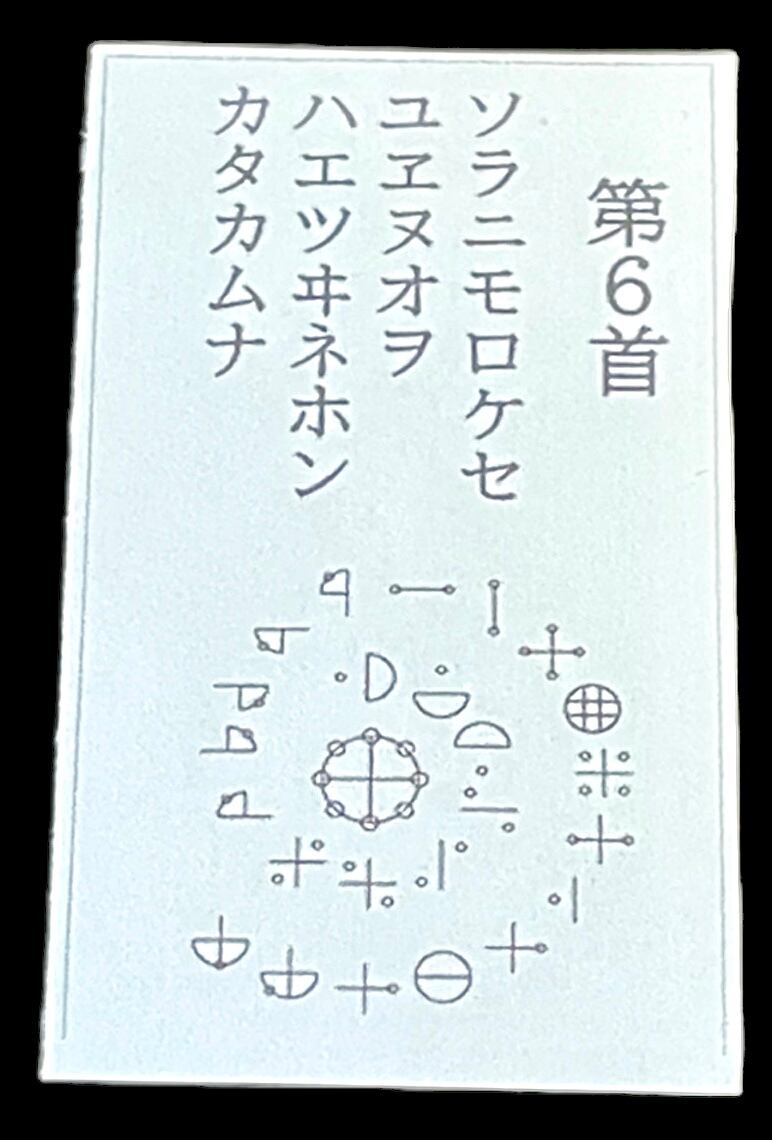 第6首
ソラニモロケセ
ユヱヌオヲ
ハエツヰネホン
カタカムナ